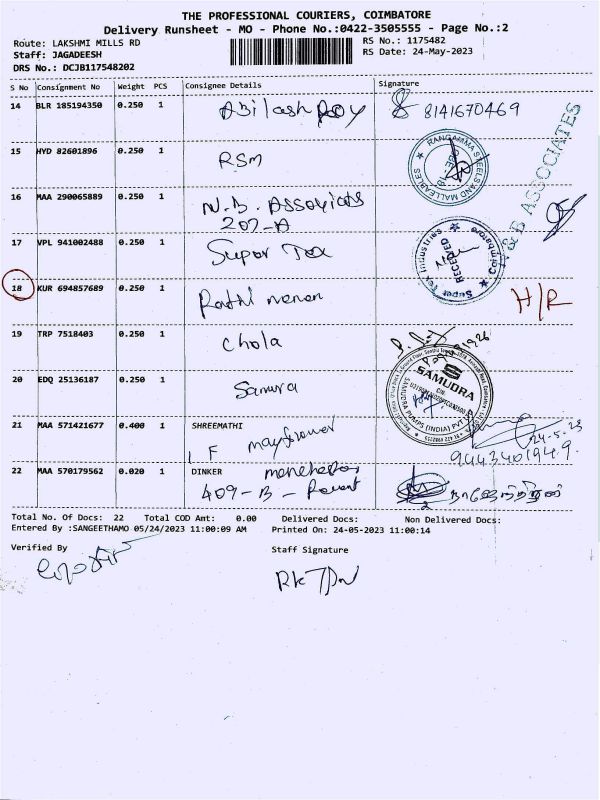 THE PROFESSIONAL COURIERS, COIMBATORE
Delivery Runsheet - MO - Phone No.:0422-3505555 - Page No.:2
Route: LAKSHMI MILLS RD RS No.: 1175482
Staff: JAGADEESH RS Date: 24-May-2023
DRS No.: DCJB117548202
S No Consignment No Weight PCS Consignee Details Signature
14 BLR 185194350 0.250 1 Abilash Roy 8141670469
15 HYD 82601896 0.250 1 RSM
RANGAMMA STEELS AND MALLEABLES
N&B ASSOCIATES
16 MAA 290065889 0.250 1 N.B. Associats
207-A
17 VPL 941002488 0.250 1 Super Tex
Super Tex Industries Coimbatore RECEIVED
18 KUR 694857689 0.250 1 Rathi menon H/R
19 TRP 7518403 0.250 1 Chola
20 EDQ 25136187 0.250 1 Samura
SAMUDRA
SAMUDRA PUMPS (INDIA) PVT LTD
21 MAA 571421677 0.400 1 SHREEMATHI
I F mayflower 24-5-23
9443401949
22 MAA 570179562 0.020 1 DINKER
409-B -
Total No. Of Docs: 22 Total COD Amt: 0.00 Delivered Docs: Non Delivered Docs:
Entered By :SANGEETHAMO 05/24/2023 11:00:09 AM Printed On: 24-05-2023 11:00:14
Verified By Staff Signature